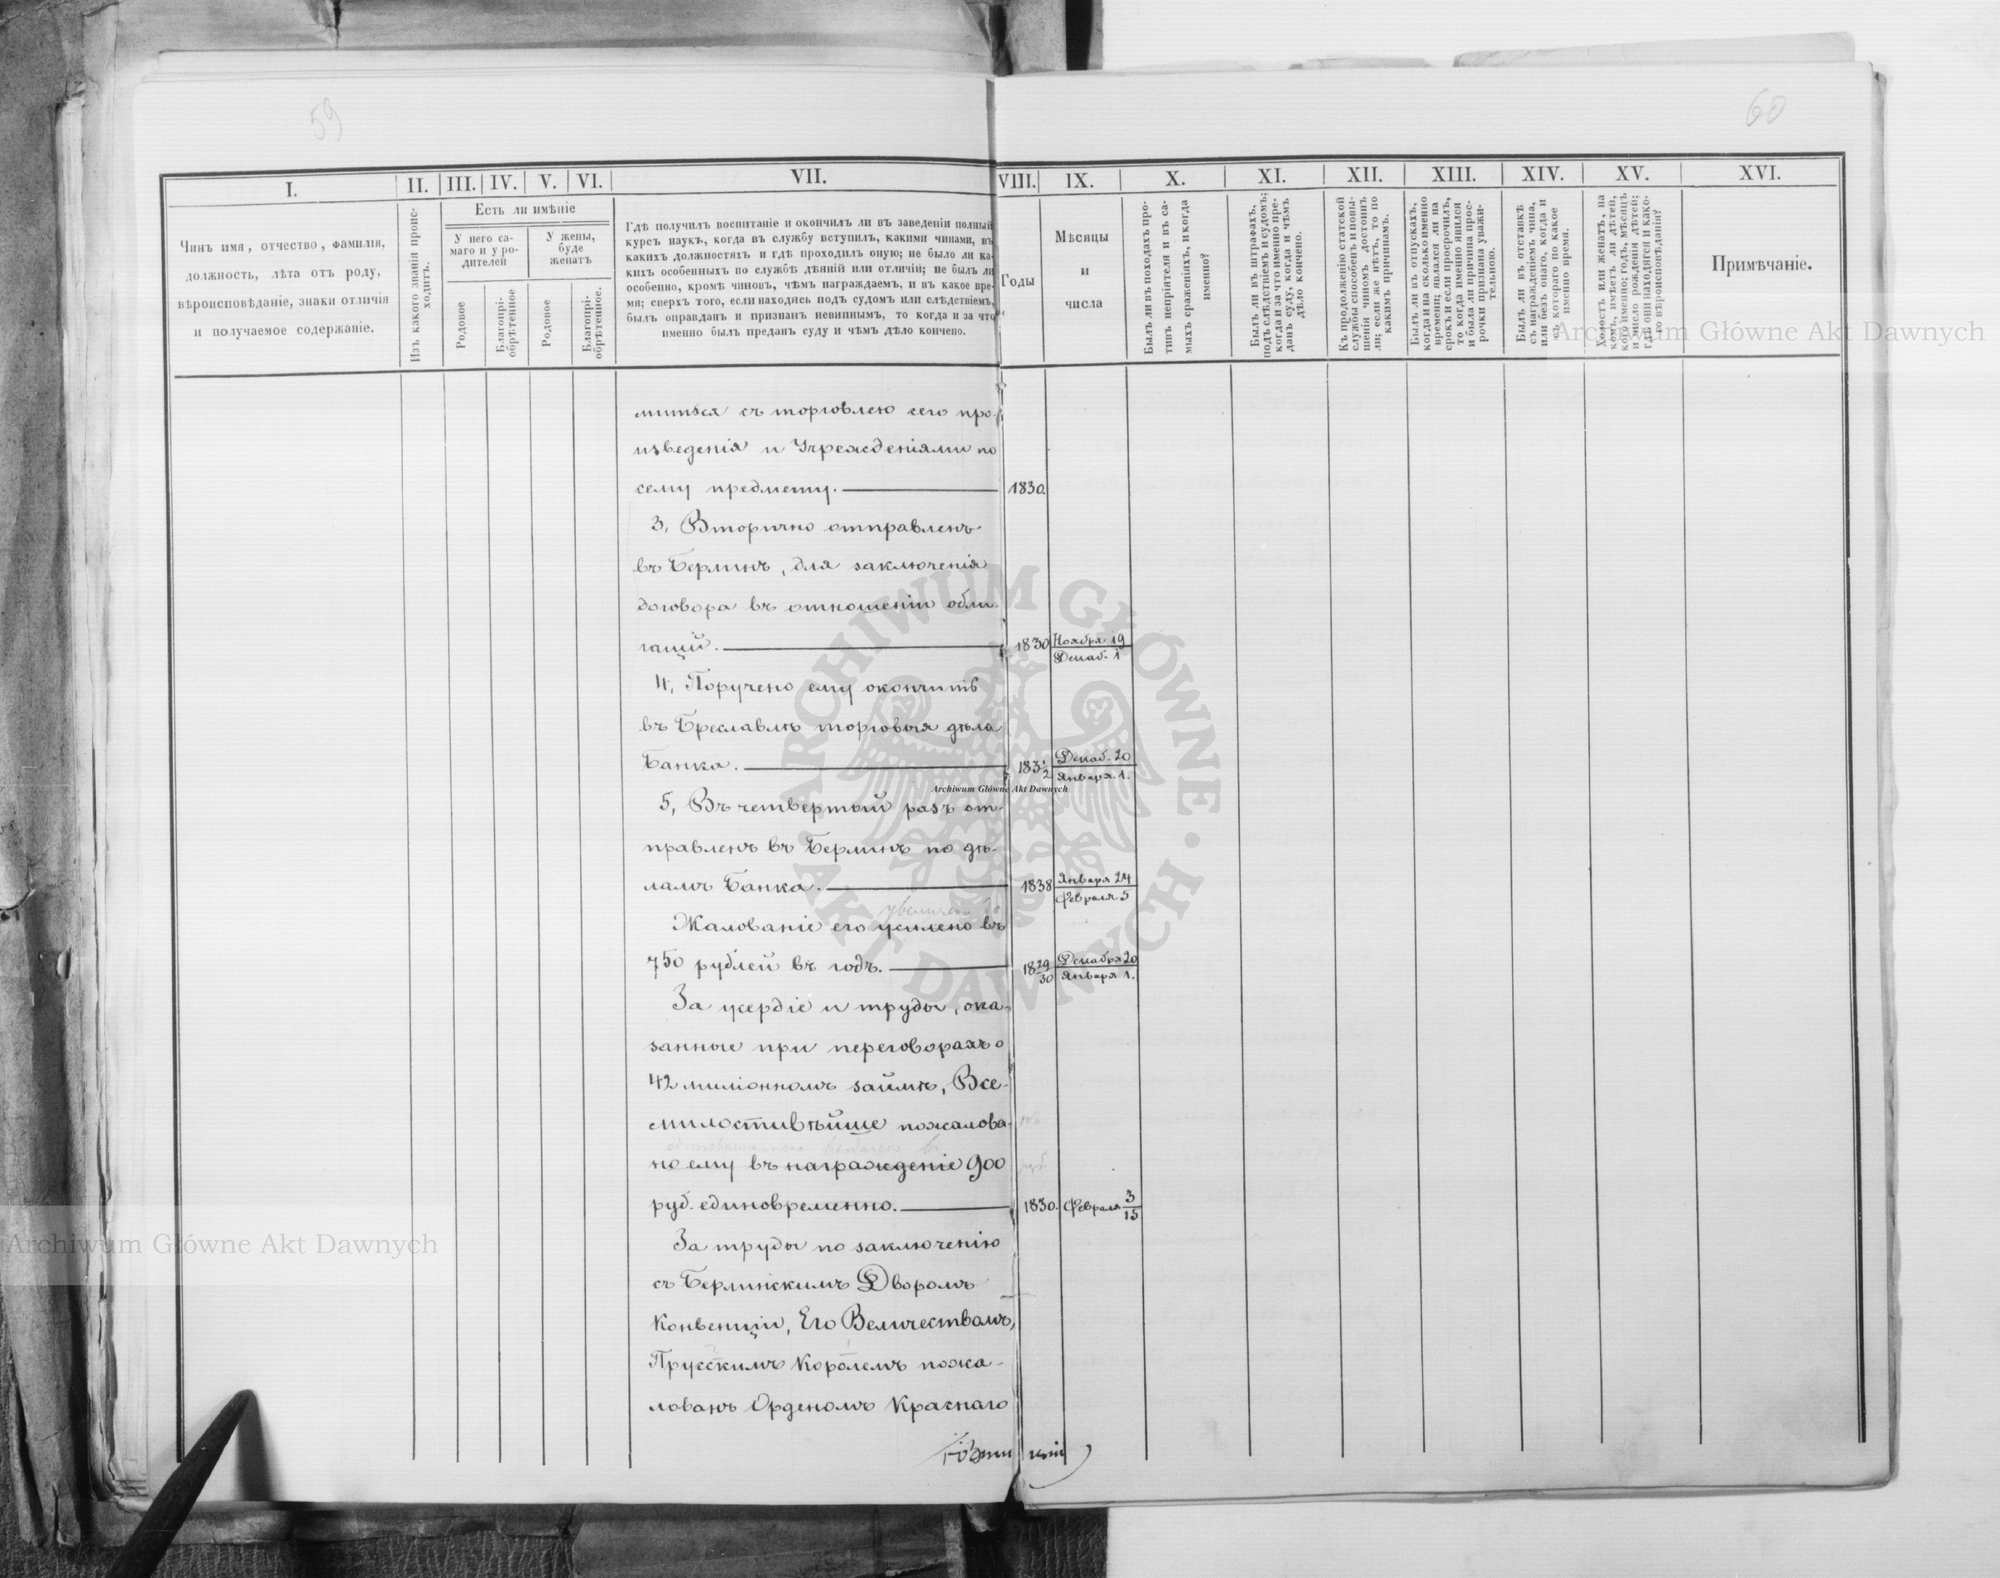 59
60
I.
II.
III.
IV.
V.
VI.
VII.
VIII.
IX.
X.
XI.
XII.
XIII.
XIV.
XV.
XVI.
Чинъ имя, отчество, фамилія,
должность, лѣта отъ роду,
вѣроисповѣданіе, знаки отличія
и получаемое содержаніе.
Изъ какого званія проис-
ходитъ.
Есть ли имѣніе
У него са-
маго и у ро-
дителей
У жены,
буде
женатъ
Родовое
Благопрі-
обрѣтенное
Родовое
Благопрі-
обрѣтенное.
Гдѣ получилъ воспитаніе и окончилъ ли въ заведеніи полный
курсъ наукъ, когда въ службу вступилъ, какими чинами, въ
какихъ должностяхъ и гдѣ проходилъ оную; не было ли ка-
кихъ особенныхъ по службѣ дѣяній или отличій; не былъ ли
особенно, кромѣ чиновъ, чѣмъ награждаемъ, и въ какое вре-
мя; сверхъ того, если находясь подъ судомъ или слѣдствіемъ,
былъ оправданъ и признанъ невиннымъ, то когда и за что
именно былъ преданъ суду и чѣмъ дѣло кончено.
Годы
Мѣсяцы
и
числа
Былъ ли въ походахъ про-
тивъ непріятеля и въ са-
мыхъ сраженіяхъ, и когда
именно?
Былъ ли въ штрафахъ,
подъ слѣдствіемъ и судомъ;
когда и за что именно пре-
данъ суду, когда и чѣмъ
дѣло кончено.
Къ продолженію статской
службы способенъ и повы-
шенія чиномъ достоинъ
ли; если же нѣтъ, то по
какимъ причинамъ.
Былъ ли въ отпускахъ,
когда и на сколько именно
времени; являлся ли на
срокъ и если просрочилъ,
то когда именно явился
и была ли причина прос-
рочки признана уважи-
тельною.
Былъ ли въ отставкѣ
съ награжденіемъ чина,
или безъ онаго, когда и
съ котораго по какое
именно время.
Холостъ или женатъ, на
комъ, имѣетъ ли дѣтей,
кого именно; годъ, мѣсяцъ
и число рожденія дѣтей;
гдѣ они находятся и како-
го вѣроисповѣданія?
Примѣчаніе.
миться съ торговлею сего про-
изведенія и Учрежденіями по
сему предмету. 1830.
3, Вторично отправленъ
въ Берлинъ, для заключенія
договора въ отношеніи обли-
гацій. 1830 Ноября 19
Декаб. 1
4, Поручено ему окончить
въ Бреславлѣ торговыя дѣла
Банка. 1831/2 Декаб. 20
Января. 1.
5, Въ четвертый разъ от-
правленъ въ Берлинъ по дѣ-
ламъ Банка. 1838 Января 24
Февраля 5
увеличено до
Жалованіе его усилено въ
750 рублей въ годъ. 1829/30 Декабря 20
Января 1.
За усердіе и труды, ока-
занные при переговорахъ о
42 миліонномъ займѣ, Все-
милостивѣйше пожалова-
но ему въ награжденіе 900
руб. единовременно. 1830. Февраля 3/15
За труды по заключенію
съ Берлинскимъ Дворомъ
Конвенціи, Его Величествомъ,
Прусскимъ Королемъ пожа-
лованъ Орденомъ Краснаго
Archiwum Główne Akt Dawnych
Archiwum Główne Akt Dawnych
Archiwum Główne Akt Dawnych
ARCHIWUM GŁÓWNE · AKT DAWNYCH ·